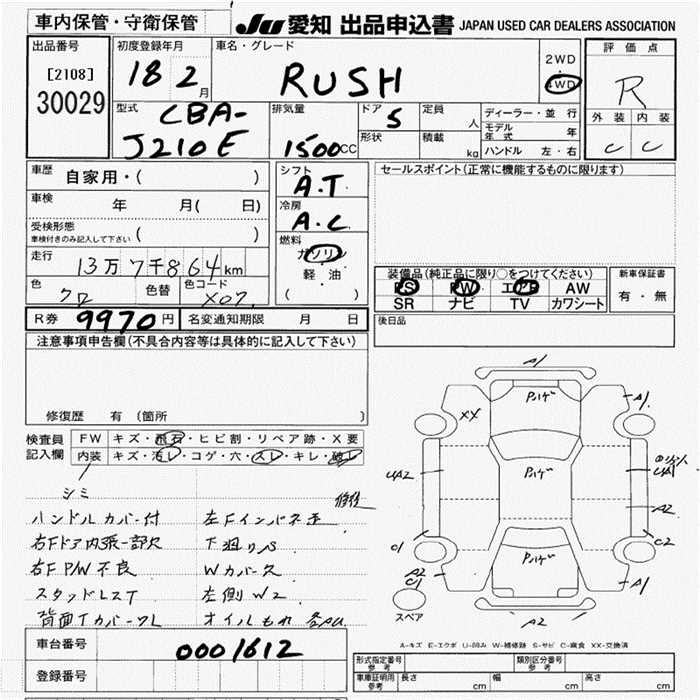 車内保管・守衛保管
JU 愛知 出品申込書 JAPAN USED CAR DEALERS ASSOCIATION
出品番号
[2108]
30029
初度登録年月
18 2 月
車名・グレード
RUSH
2WD
4WD
評価点
R
外装 内装
C C
型式
CBA-
J210E
排気量
1500CC
ドア
5
形状
定員
人
積載
kg
ディーラー・並行
モデル年式 年
ハンドル 左・右
車歴
自家用・( )
車検
年 月( 日)
受検形態
車検付きのみ記入して下さい ( )
走行
13万7千864km
色
クロ
色替
色コード
X07
シフト
A.T
冷房
A.C
燃料
ガソリン
軽・油
( )
セールスポイント(正常に機能するものに限ります)
装備品(純正品に限り○をつけてください)
PS PW エアB AW
SR ナビ TV カワシート
新車保証書
有・無
後日品
R券 9970円
名変通知期限 月 日
注意事項申告欄(不具合内容等は具体的に記入して下さい)
修復歴 有 (箇所 )
検査員
記入欄
FW キズ・飛石・ヒビ割・リペア跡・X要
内装 キズ・汚レ・コゲ・穴・スレ・キレ・破レ
シミ
修復
ハンドルカバー付
左Fインパネ歪
右Fドア内張一部欠
下廻りS
右F P/W不良
Wカバー欠
スタッドレスT
左側W2
背面Tカバークレ
オイルもれ
A1
A1
XX
パハゲ
パハゲ
パハゲ
UA2
UA1
A2
C1
C2
A2
C1
A1
A2
スペア
A-キズ E-エクボ U-凹み W-補修跡 S-サビ C-腐食 XX-交換済
車台番号
0001612
登録番号
形式指定番号
参考
類別区分番号
参考
車庫証明用
参考
長さ cm
幅 cm
高さ cm